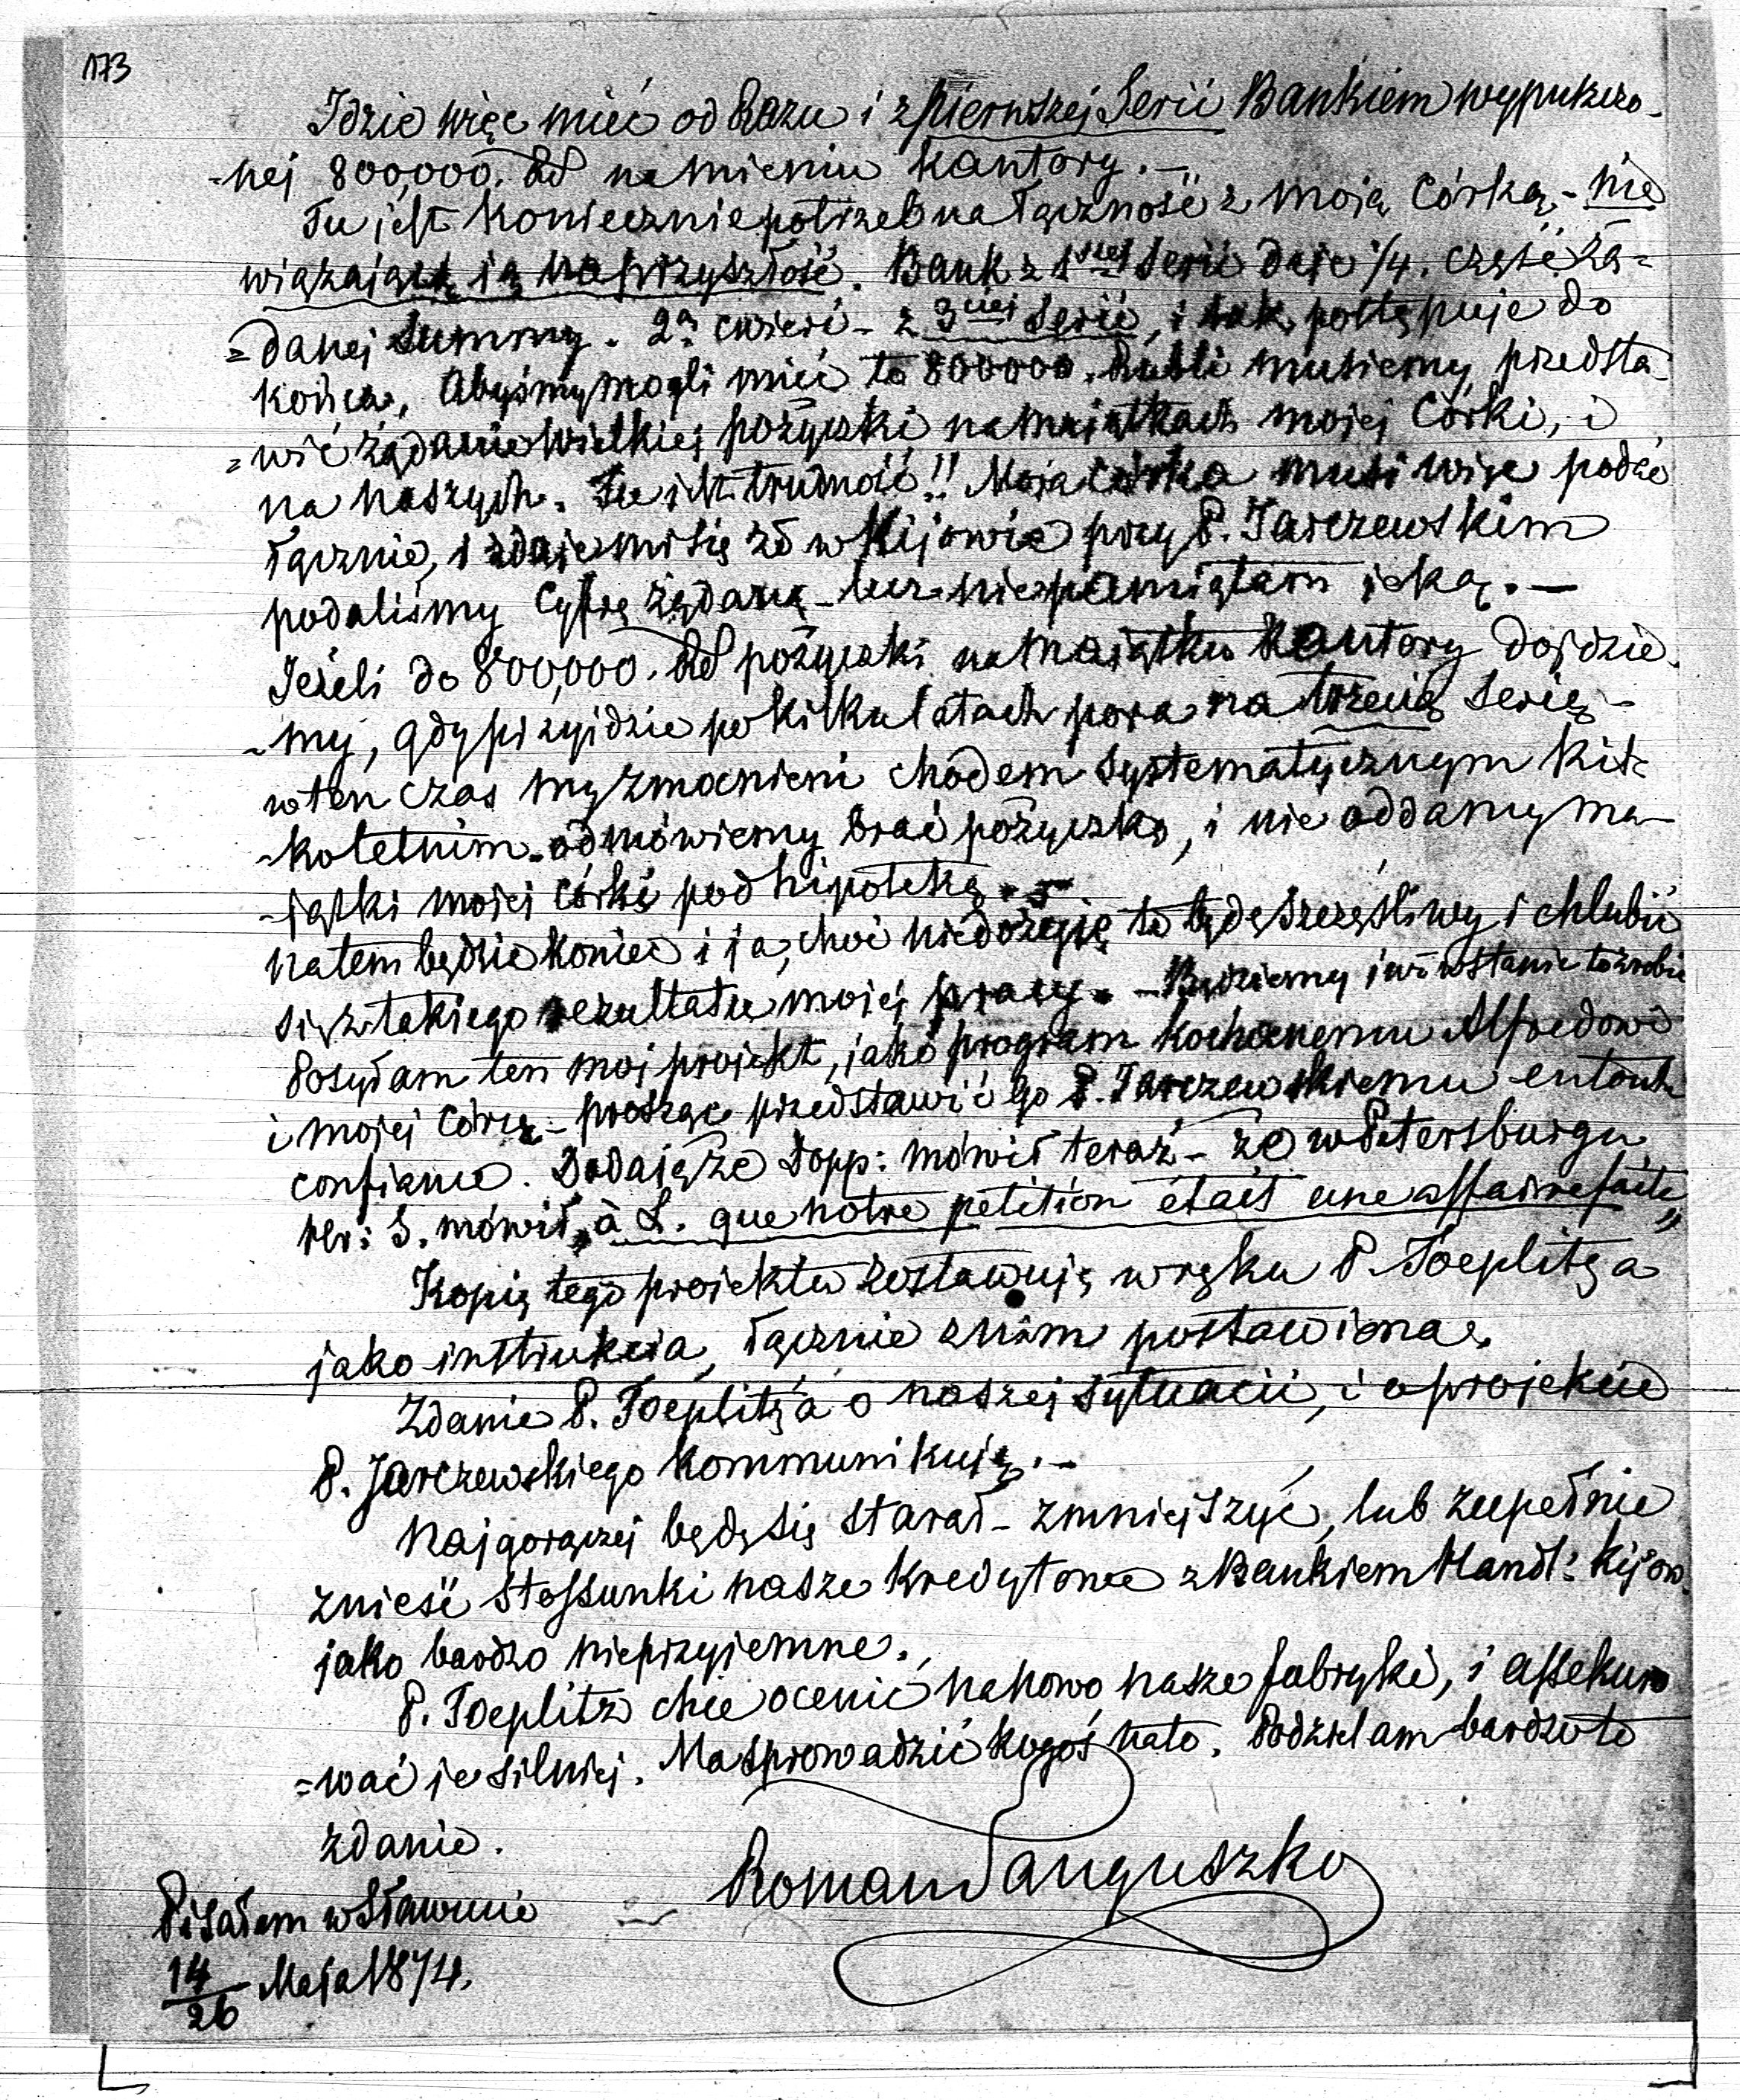 173
Idzie więc mieć od Razu i z pierwszej Serii Bankiem wypuszczo-
-nej 800,000. Rs na mieniu Kantory.-
Tu jest koniecznie potrzebna łączność z moją Córką,- nie
wiążającą ją na przyszłość. Bank z 1szej Serii daje 1/4. część żą=
=danej Summy. 2a ćwierć - z 3ciej Serii, i tak postępuje do
końca, Abyśmy mogli mieć to 800000. Rubli musiemy przedsta
=wić żądanie wielkiej pożyczki na majątkach mojej Córki, i
na naszych. Tu jest trudność!! Moja Córka musi więc podać
łącznie, i zdaje mi się że w Kijowie przy P. Jarczewskim
podaliśmy Cyfrę żądaną - lecz nie pamiętam jaką.-
Jeżeli do 800,000. Rs pożyczki na Majątku Kantory dojdzie-
-my, gdy przyjdzie po kilku latach pora na trzecią Serię-
w ten czas my zmocnieni chodem systematycznym kil-
-koletnim - odmówiemy brać pożyczkę, i nie oddamy ma-
-jątki mojej Córki pod hipotekę.-
na tem będzie koniec i ja, choć nie dożyję to będę szczęśliwy i chlubić
się z takiego rezultatu mojej pracy. - Będziemy już w stanie to zrobić
Posyłam ten moj projekt, jako program kochanemu Alfredowi
i mojej Córce - prosząc przedstawić go P. Jarczewskiemu en toute
confiance. Dodaję że Dopp: mówił teraz - że w Petersburgu
S. mówił „à L. que notre petition était une affaire faite„
Kopię tego projektu zostawuję w ręku P. Toeplitza
jako instrukcia, łącznie z nim postawiona.
Zdanie P. Toeplitza o naszej sytuacii, i o projekcie
P. Jarczewskiego kommunikuję.-
Najgoręcej będę się starał - zmniejszyć, lub zupełnie
znieść stossunki nasze kredytowe z Bankiem Handl: Kijow.
jako bardzo nieprzyjemne.
P. Toeplitz chce ocenić na nowo nasze fabryki, i assekuro
=wać je silniej. Ma sprowadzić kogoś na to. Podzielam bardzo to
zdanie.
Roman Sanguszko
Pisałem w Sławucie
14/26 Maja 1874.